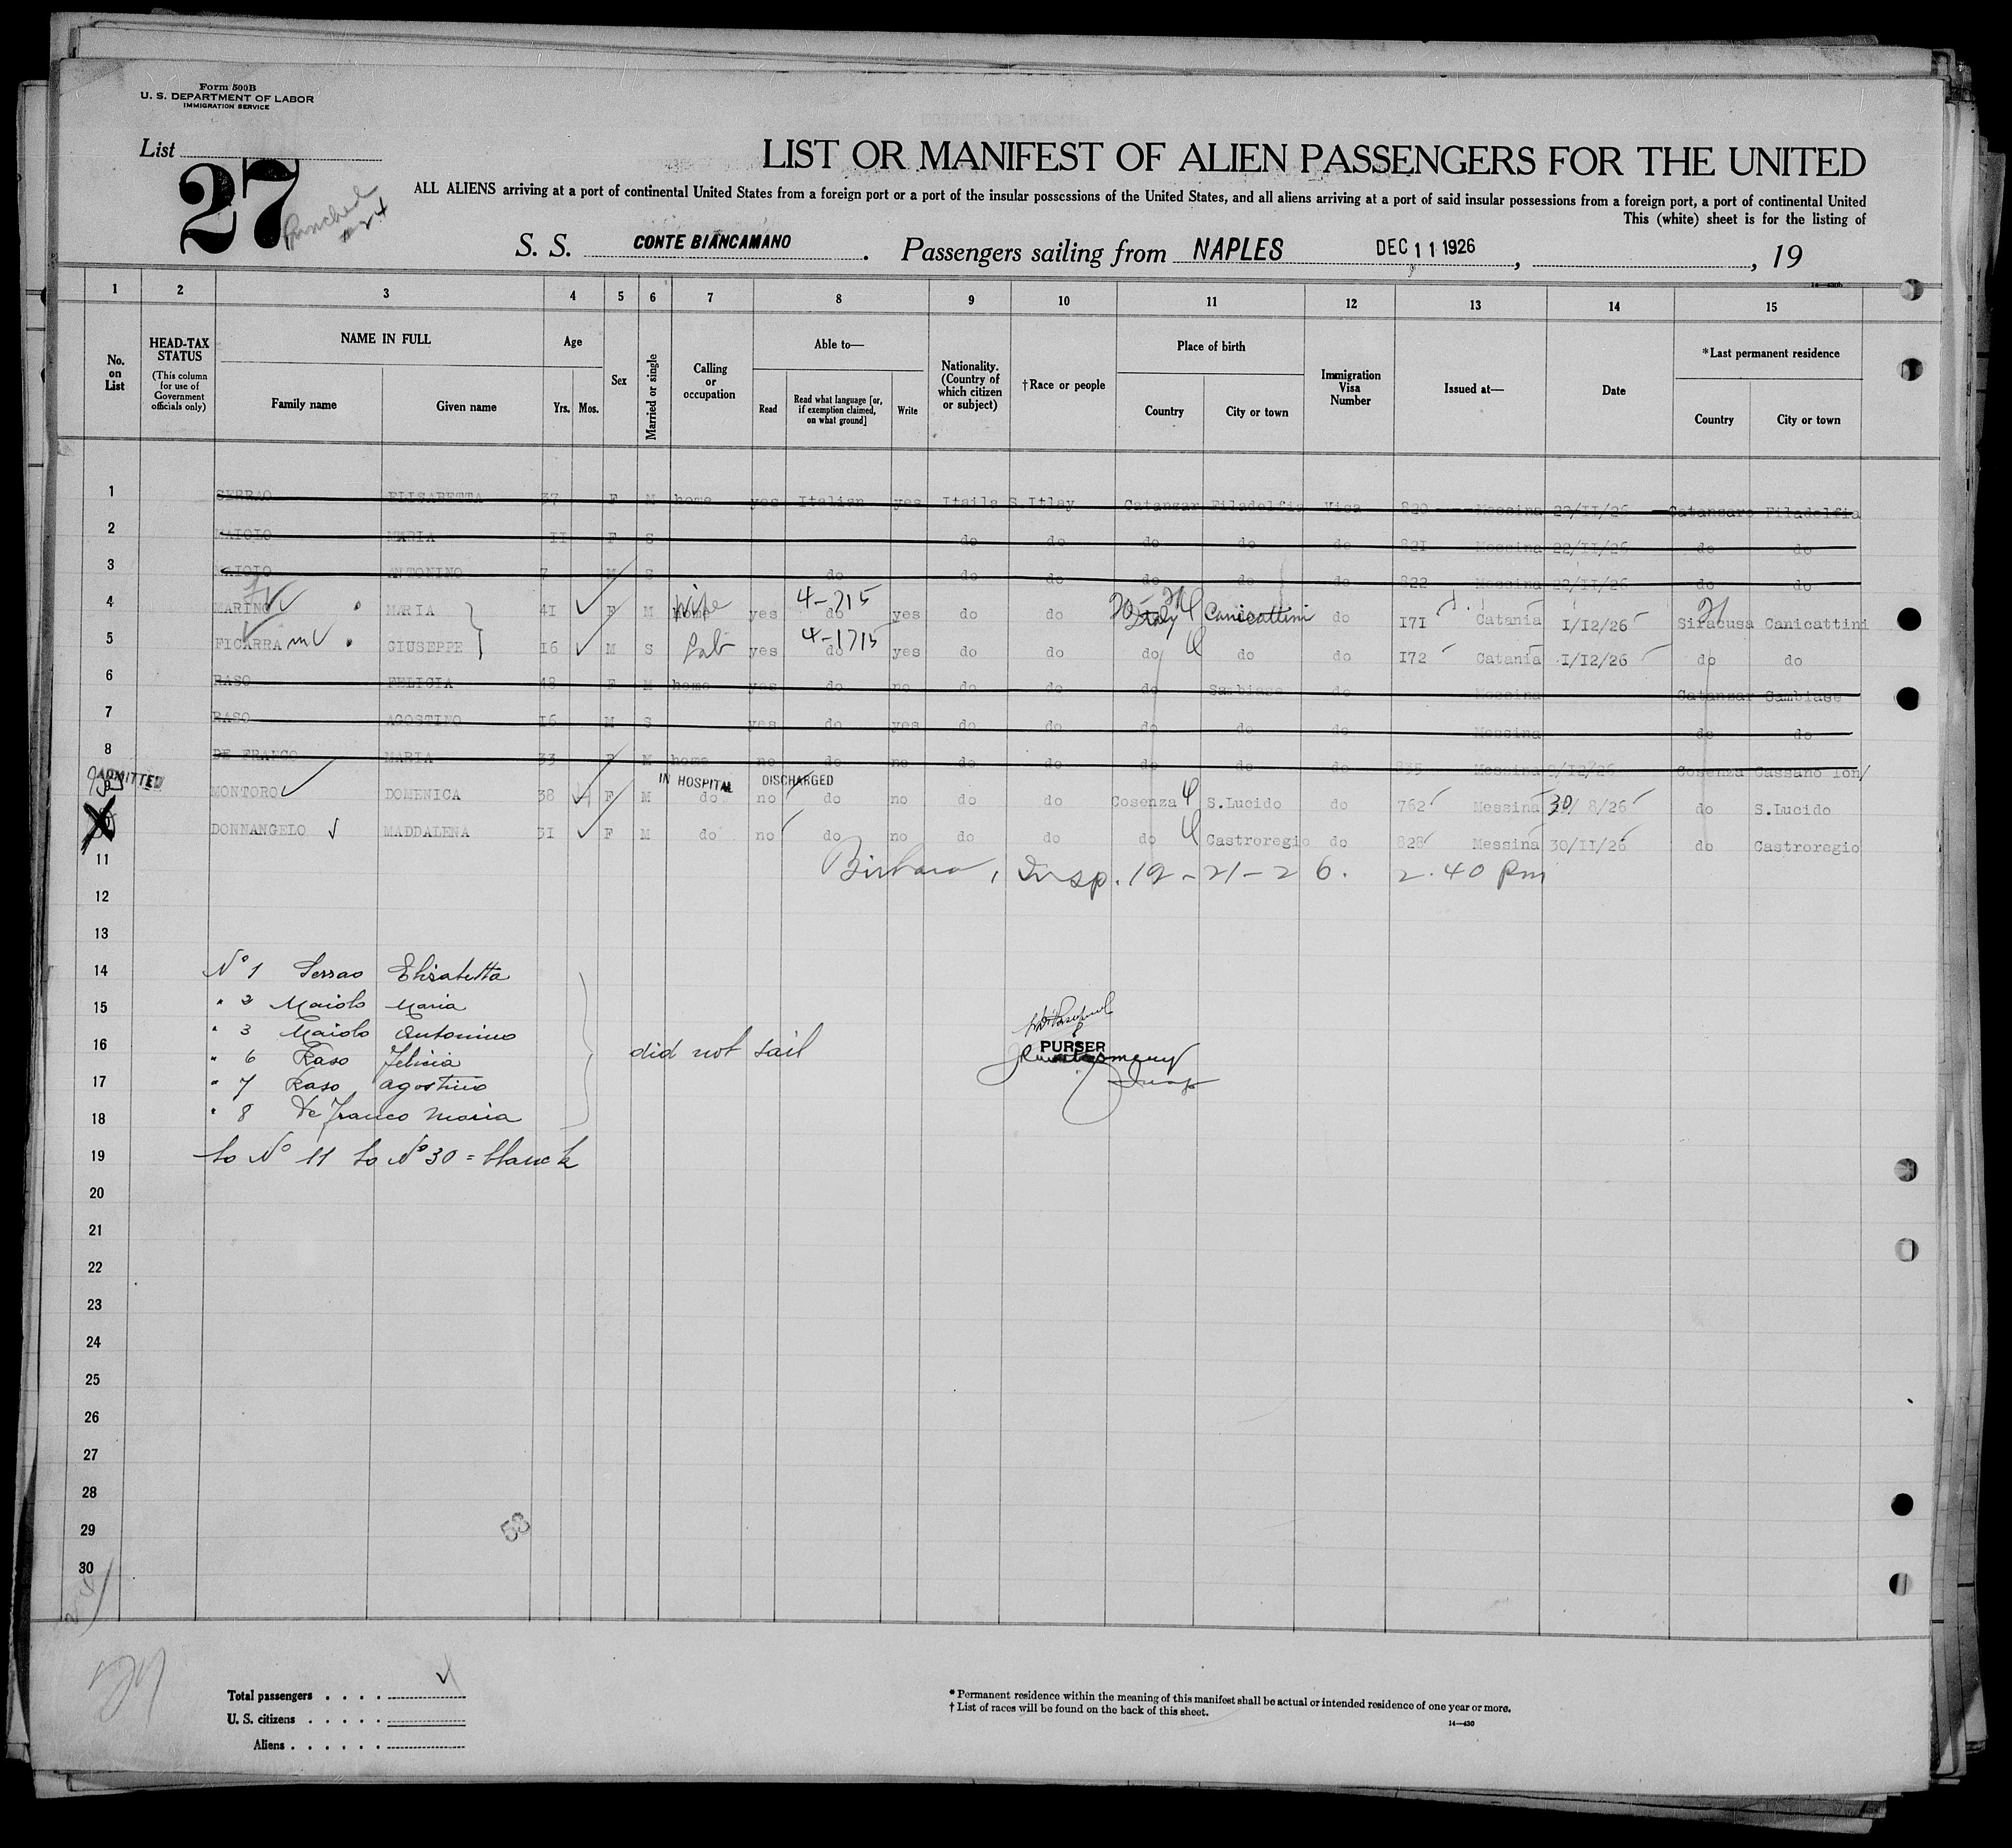 Form 500B
U. S. DEPARTMENT OF LABOR
IMMIGRATION SERVICE
List
27
Punched
LIST OR MANIFEST OF ALIEN PASSENGERS FOR THE UNITED
ALL ALIENS arriving at a port of continental United States from a foreign port or a port of the insular possessions of the United States, and all aliens arriving at a port of said insular possessions from a foreign port, a port of continental United
This (white) sheet is for the listing of
S. S. CONTE BIANCAMANO . Passengers sailing from NAPLES DEC 11 1926 , , 19
1 2 3 4 5 6 7 8 9 10 11 12 13 14 15
No. on List
HEAD-TAX STATUS (This column for use of Government officials only)
NAME IN FULL
Family name
Given name
Age
Yrs. Mos.
Sex
Married or single
Calling or occupation
Able to—
Read
Read what language [or, if exemption claimed, on what ground]
Write
Nationality. (Country of which citizen or subject)
†Race or people
Place of birth
Country
City or town
Immigration Visa Number
Issued at—
Date
*Last permanent residence
Country
City or town
1 SERRAO ELISABETTA 37 F M home yes Italian yes Itails S.Itley Catanzar Filadelfia Visa 820 Messina 22/II/26 Catanzaro Filadelfia
2 MAIOLO MARIA II F S do do do do do 821 Messina 22/II/26 do do
3 MAIOLO ANTONINO 7 M S do do do do do do 822 Messina 22/II/26 do do
4 MARINO MARIA 41 F M home wife yes do 4-715 yes do do Italy Canicattini do I7I Catania I/I2/26 Siracusa Canicattini
5 FICARRA m GIUSEPPE I6 M S Lab yes do 4-1715 yes do do do do do I72 Catania I/I2/26 do do
6 RASO FELICIA 48 F M home yes do no do do do Sambiase do Messina Catanzar Sambiase
7 RASO AGOSTINO I6 M S yes do yes do do do do do Messina do do
8 DE FRANCO MARIA 33 F M home no do no do do do do do 835 Messina 9/I2/26 Cosenza Cassano Ion
ADMITTED
IN HOSPITAL DISCHARGED
MONTORO DOMENICA 38 F M do no do no do do Cosenza S.Lucido do 762 Messina 30/ 8/26 do S.Lucido
DONNANGELO MADDALENA 3I F M do no do no do do do Castroregio do 828 Messina 30/II/26 do Castroregio
11 , Insp. 12-21-26. 2.40 Pm
12
13
14 No 1 Serrao Elisabetta
15 " 2 Maiolo Maria
" 3 Maiolo Antonino
16 " 6 Raso Felicia did not sail PURSER
17 " 7 Raso Agostino
18 " 8 De Franco Maria
19 to No 11 to No 30 = blanck
20
21
22
23
24
25
26
27
28
29
53
30
Total passengers . . . .
U. S. citizens . . . . .
Aliens . . . . . .
* Permanent residence within the meaning of this manifest shall be actual or intended residence of one year or more.
† List of races will be found on the back of this sheet.
14—430